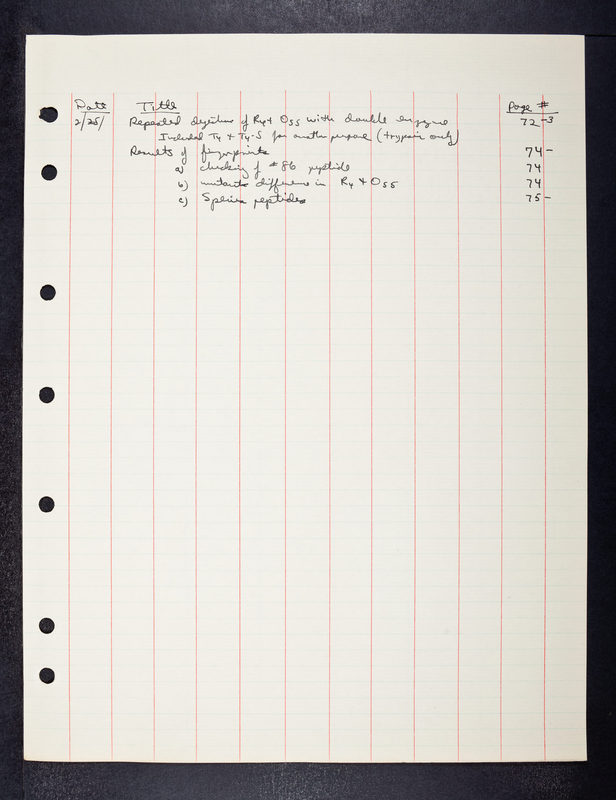 Date Title Page #
2/25/ Repeated digestion of R4 + O55 with double enzyme 72-3
Included T4 + T4-S for another purpose (trypsin only)
Results of fingerprints 74-
a) checking of #86 peptide 74
b) mutants difference in R4 + O55 74
c) peptides 75-